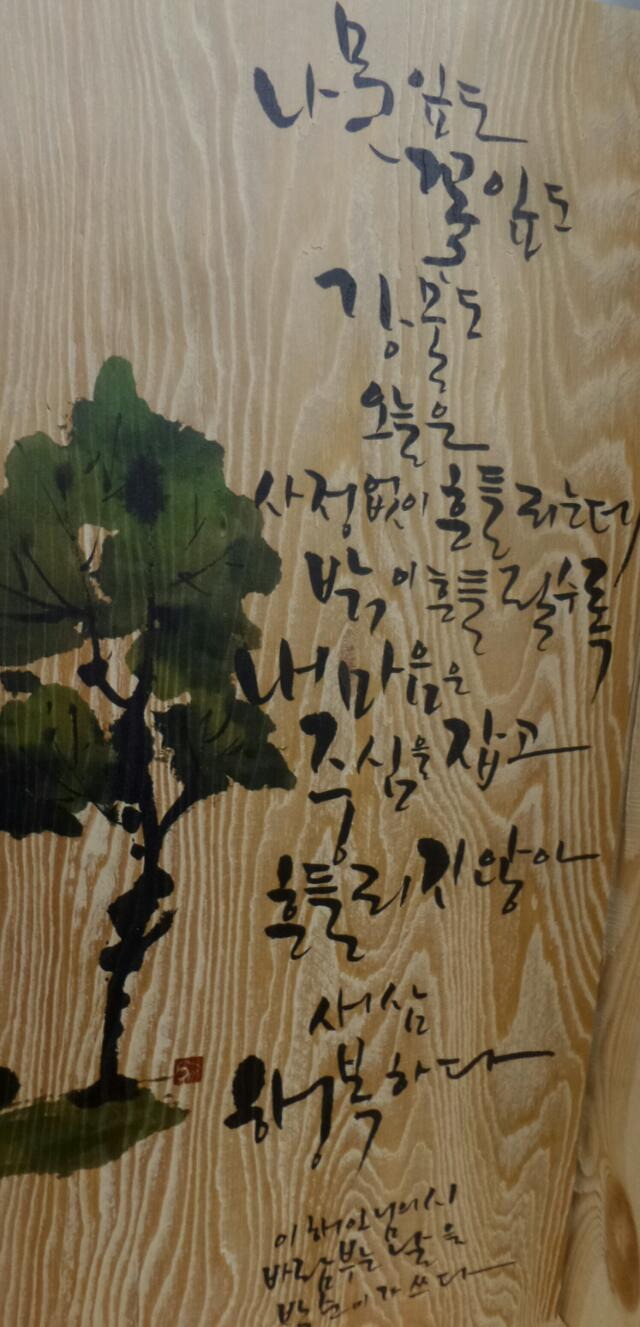 나뭇잎도
꽃잎도
강물도
오늘은
사정없이 흔들리는데
밖이 흔들릴수록
내 마음은
중심을 잡고
흔들리지 않아
새삼
행복하다
이해인님의 시
바람부는 날을
쓰다